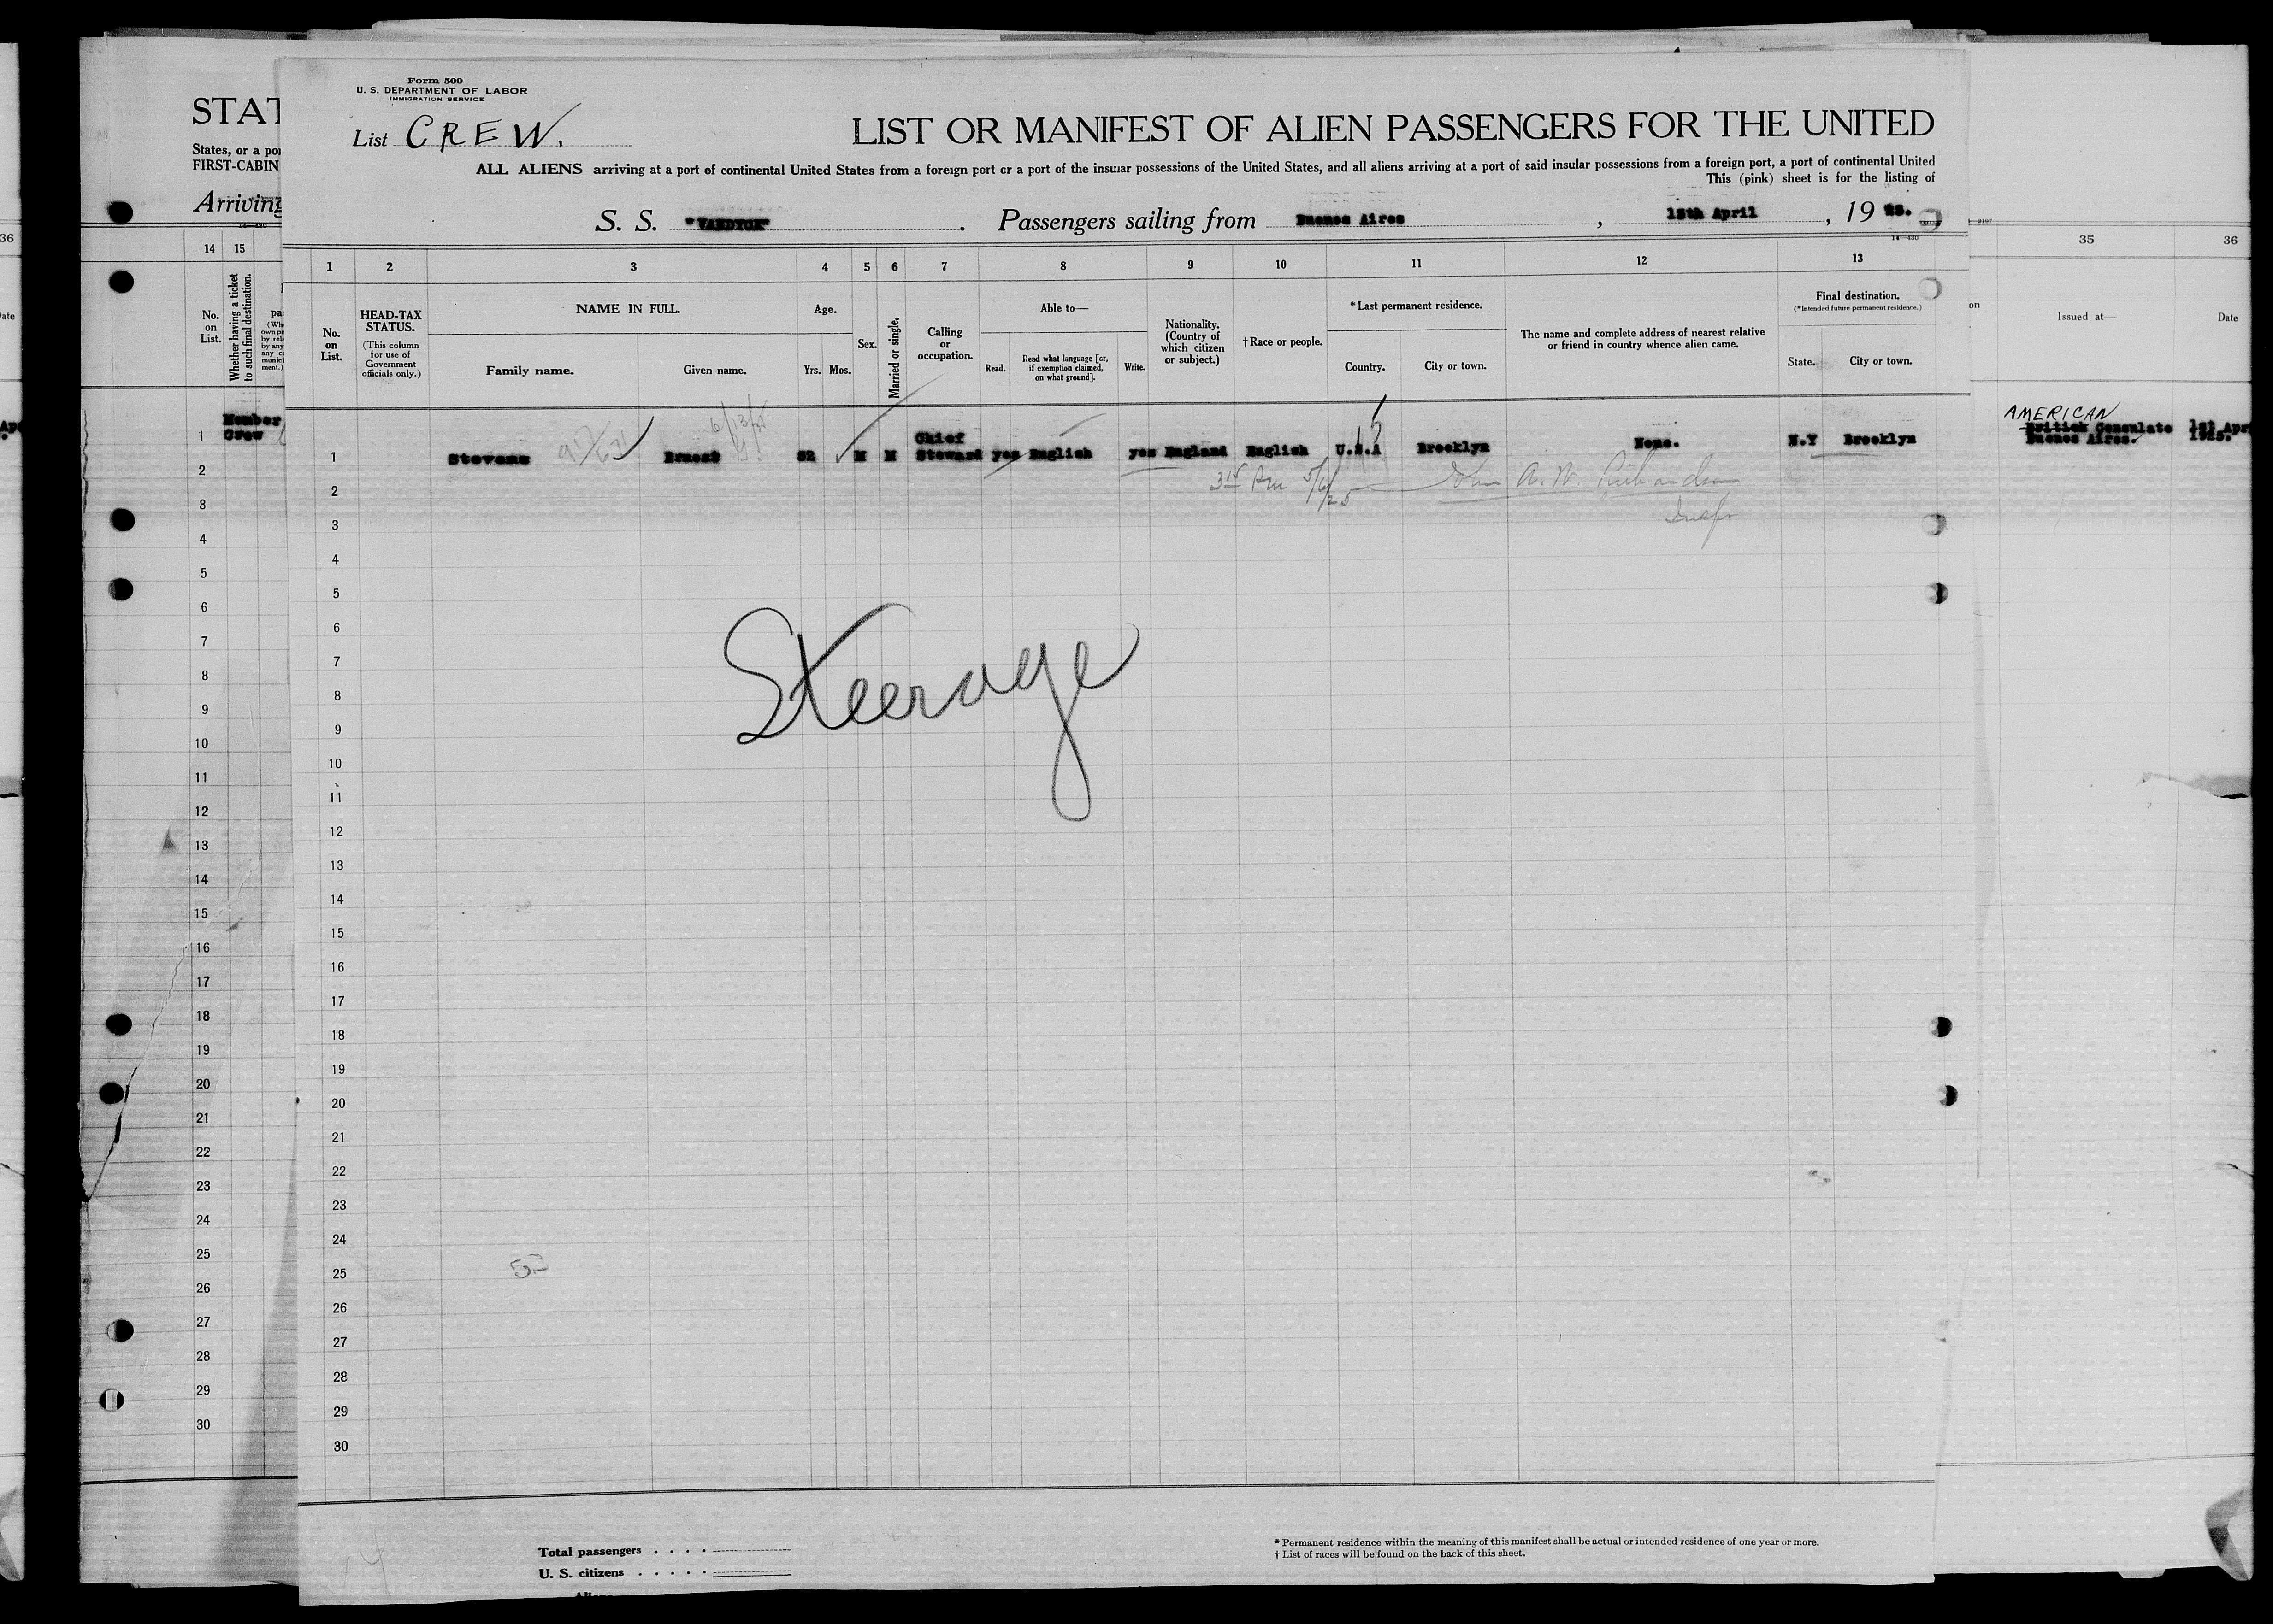 Form 500
U. S. DEPARTMENT OF LABOR
IMMIGRATION SERVICE
List CREW.
LIST OR MANIFEST OF ALIEN PASSENGERS FOR THE UNITED
ALL ALIENS arriving at a port of continental United States from a foreign port or a port of the insular possessions of the United States, and all aliens arriving at a port of said insular possessions from a foreign port, a port of continental United
This (pink) sheet is for the listing of
S. S. "VANDYCK". Passengers sailing from Buenos Aires, 15th April, 1925.
STAT
States, or a po
FIRST-CABIN
Arriving
14 15
No. on List.
Whether having a ticket to such final destination.
1 2 3 4 5 6 7 8 9 10 11 12 13
No. on List.
HEAD-TAX STATUS.
(This column for use of Government officials only.)
NAME IN FULL.
Family name. Given name.
Age.
Yrs. Mos.
Sex.
Married or single.
Calling or occupation.
Able to—
Read. Read what language [or, if exemption claimed, on what ground]. Write.
Nationality. (Country of which citizen or subject.)
†Race or people.
*Last permanent residence.
Country. City or town.
The name and complete address of nearest relative or friend in country whence alien came.
Final destination.
(*Intended future permanent residence.)
State. City or town.
35 36
Issued at— Date
36
Date
Member
1 Crew
1 Stevens Ernest 52 M M Chief Steward yes English yes England English U.S.A Brooklyn None. N.Y Brooklyn
AMERICAN
British Consulate 1st Apr
Buenos Aires. 1925.
5/6/25 John A. W. Richardson
Insp
2
3
4
5
6
7
8
9
10
11
12
13
14
15
16
17
18
19
20
21
22
23
24
25
26
27
28
29
30
Steerage
2
3
4
5
6
7
8
9
10
11
12
13
14
15
16
17
18
19
20
21
22
23
24
25
26
27
28
29
30
Total passengers . . . .
U. S. citizens . . . . .
* Permanent residence within the meaning of this manifest shall be actual or intended residence of one year or more.
† List of races will be found on the back of this sheet.